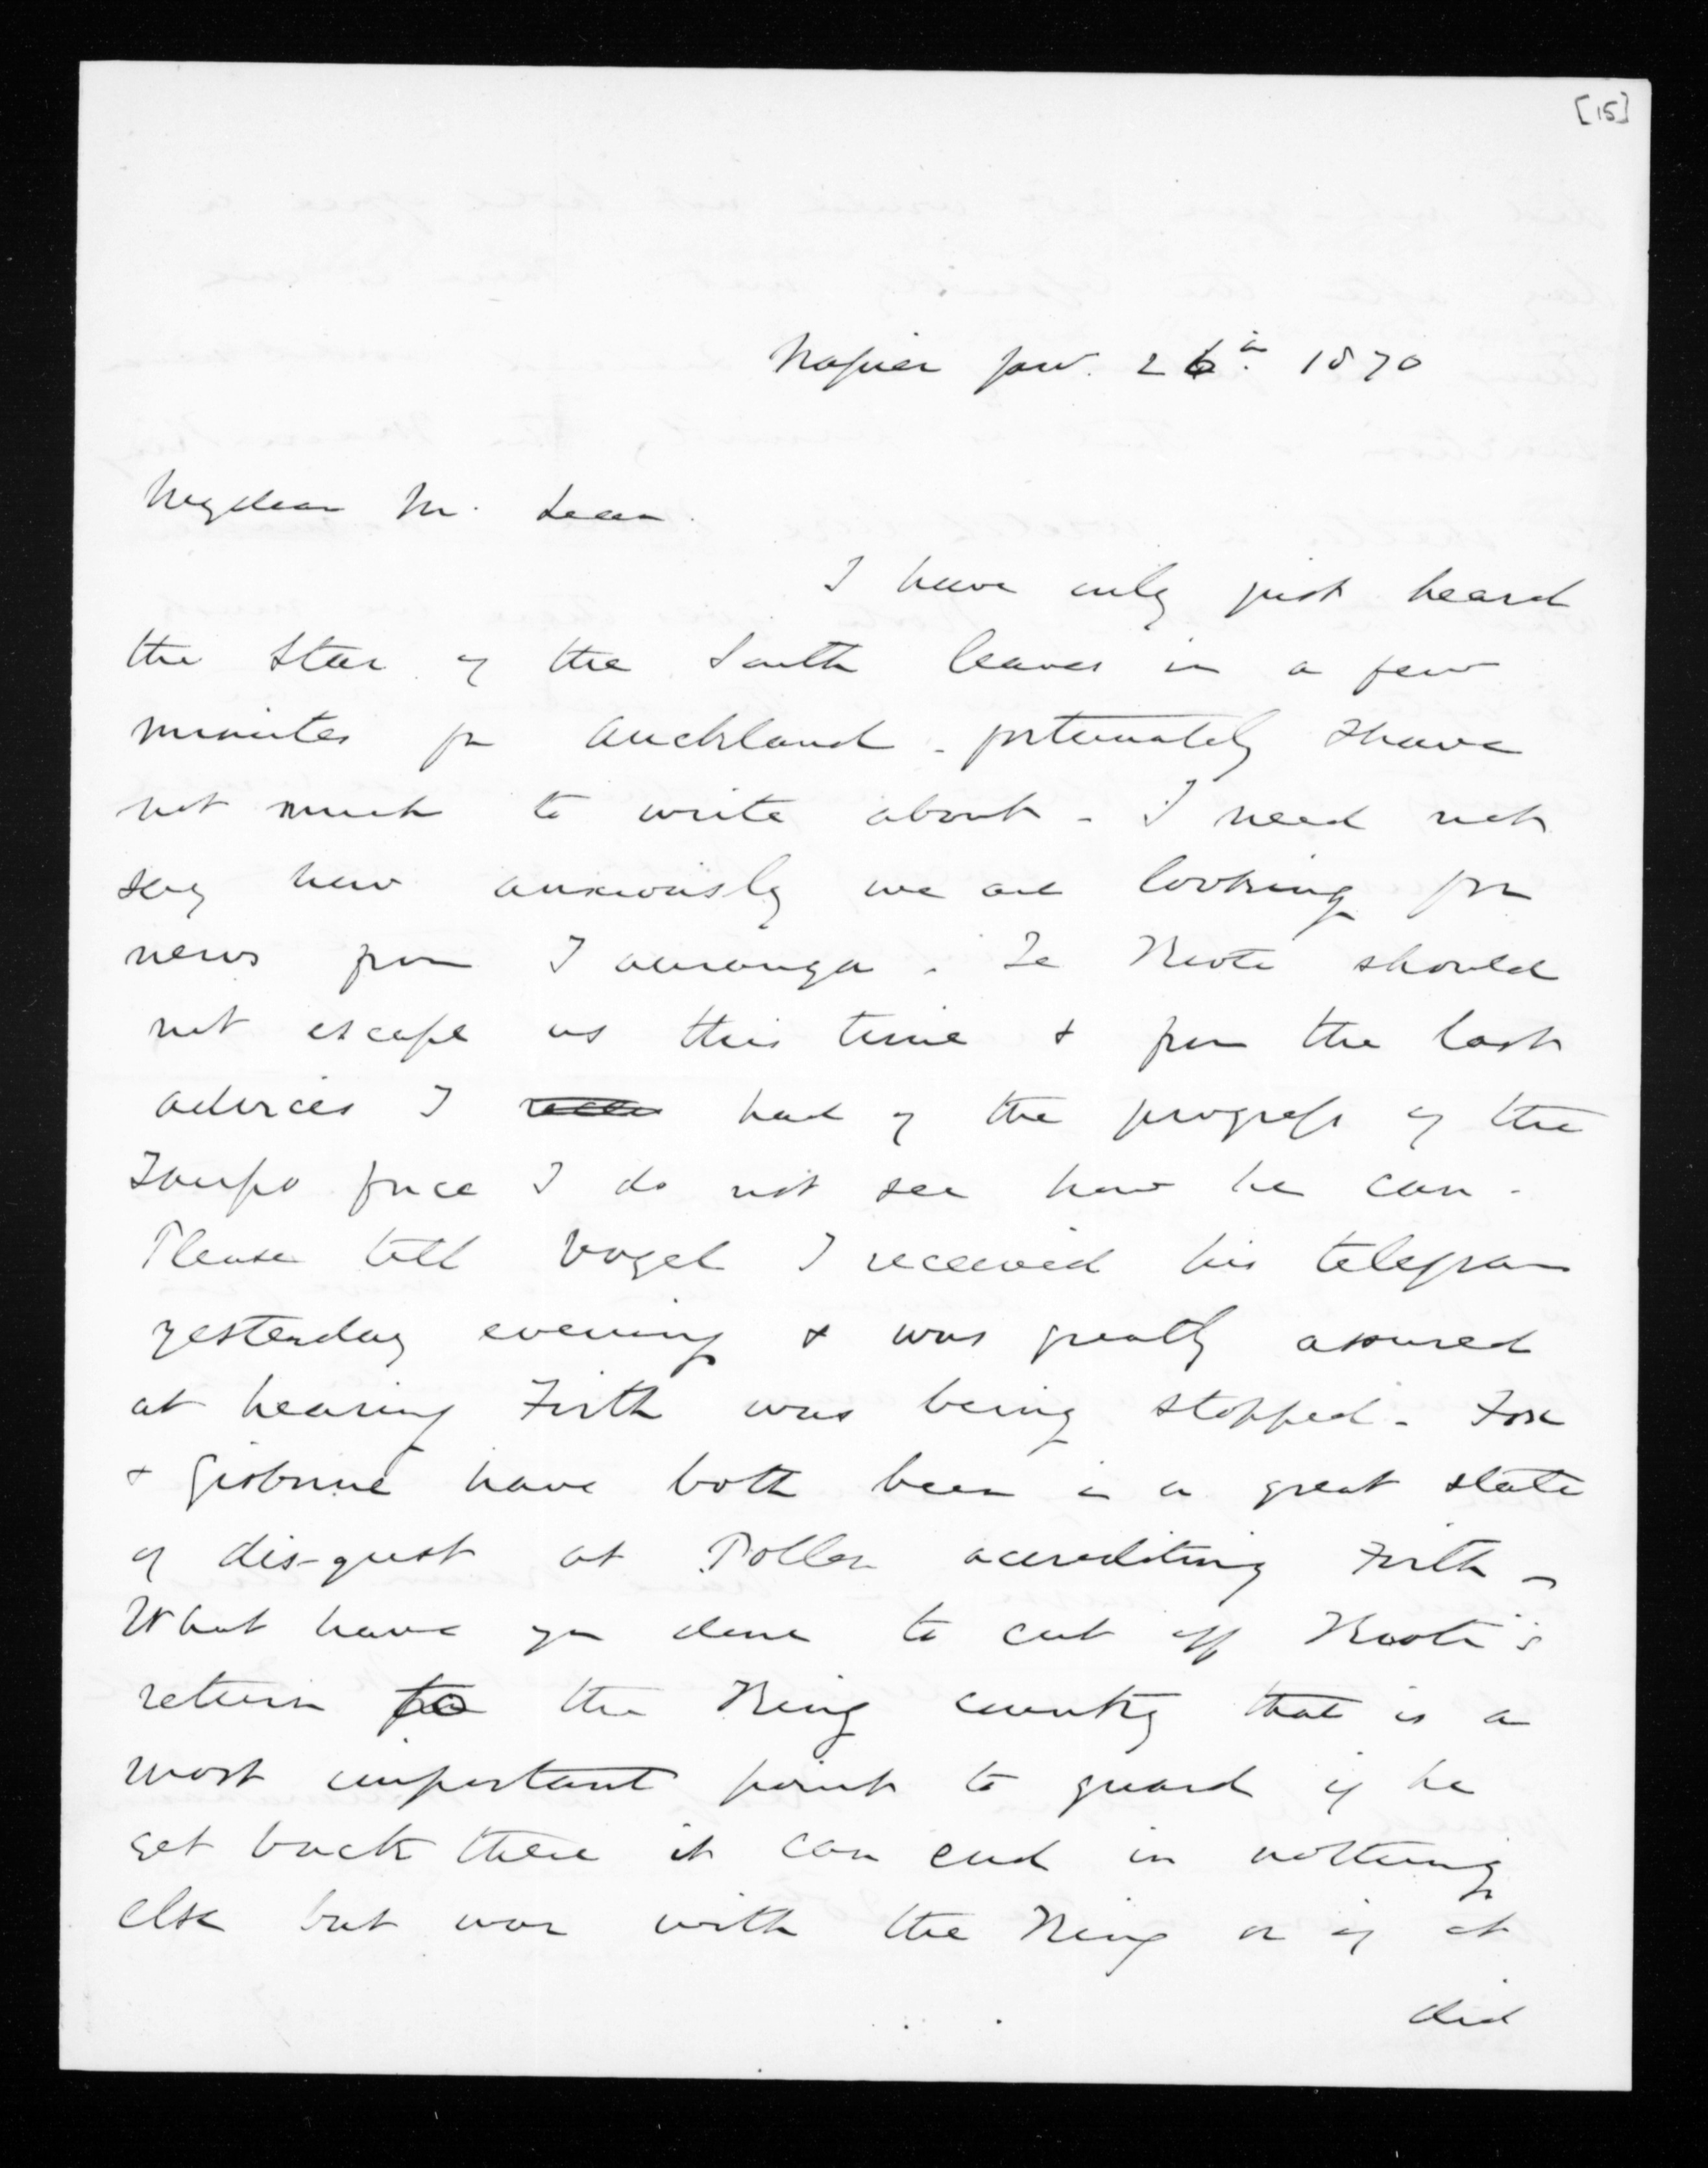 [15]
Napier Jan. 26th 1870
My dear Mc. Lean.
I have only just heard
the Star of the South leaves in a few
minutes for Auckland - fortunately I have
not much to write about - I need not
say how anxiously we are looking for
news from Tauranga. Te Kooti should
not escape us this time & from the last
advices I had of the progress of the
Taupo force I do not see how he can -
Please tell Vogel I received his telegram
yesterday evening & was greatly assured
at hearing Firth was being stopped - Fox
& Gisborne have both been in a great state
of dis-gust at Pollen accrediting Firth -
What have you done to cut off Kooti's
return to the King country that is a
most important point to guard if he
get back there it can end in nothing
else but war with the King or if it
did